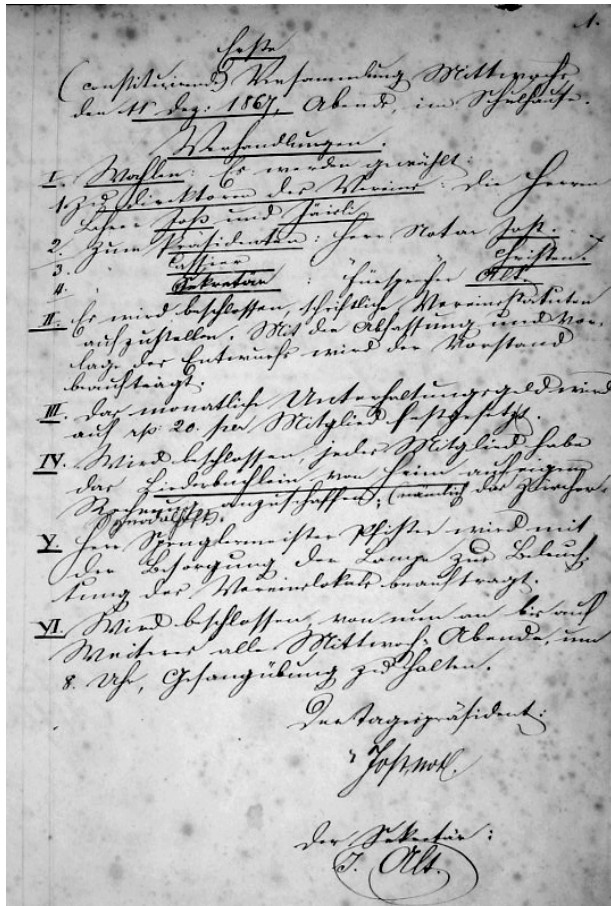 1.
Erste
(constituirende) Versammlung Mittwochs
den 11 Dez: 1867, Abends, im Schulhause.
Verhandlungen.
I. Wahlen: Es werden gewählt:
1. Zu Direktoren des Vereins: die Herren
Lehrer Joß und Jäisli
2. Zum Präsidenten: Herr Notar Jost.
3. " Cassier " Christen.
4. " Sekretär : Fürsprecher Alt.
II. Es wird beschlossen, schriftliche Vereinsstatuten
aufzustellen. Mit der Abfassung und Vor-
lage des Entwurfs wird der Vorstand
beauftragt.
III. Das monatliche Unterhaltungsgeld wird
auf rp. 20. per Mitglied festgesetzt.
IV. Wird beschlossen, jedes Mitglied habe
das Liederbüchlein von Heim auf eigene
Rechnung anzuschaffen, (nämlich das Zürcher-
V. Herr Spenglermeister Pfister wird mit
der Besorgung der Lampe zur Beleuch-
tung des Vereinslokals beauftragt.
VI. Wird beschlossen, von nun an bis auf
Weiteres alle Mittwoch-Abende, um
8. Uhr, Gesangübung zu halten.
Der Tagespräsident:
Jost, not.
Der Sekretär:
J. Alt.